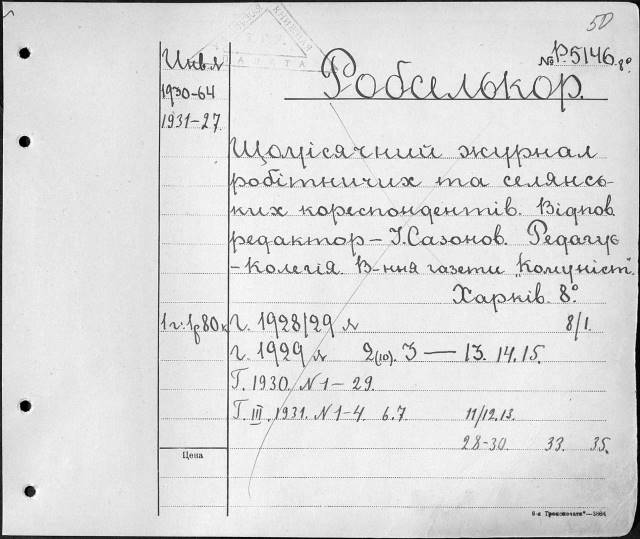 50
№ Р.5146. 8º
Инвл
1930-64
1931-27
Робселькор.
Щомісячний журнал
робітничих та селянсь-
ких кореспондентів. Відпов.
редактор – І. Сазонов. Редагує
- Колегія. В-ння газети „Комуніст".
Харків. 8º
1 г. 1р 80к
г. 1928/29 № 8/1.
г. 1929 № 2(10). 3 — 13. 14. 15.
Г. 1930. N 1 – 29.
Г. III. 1931. N 1-4. 6.7. 11/12. 13.
28-30. 33. 35.
Цена